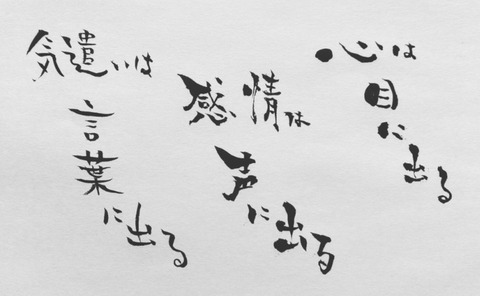 心は
目に
出る
感情は
声に
出る
気遣いは
言葉
に出る